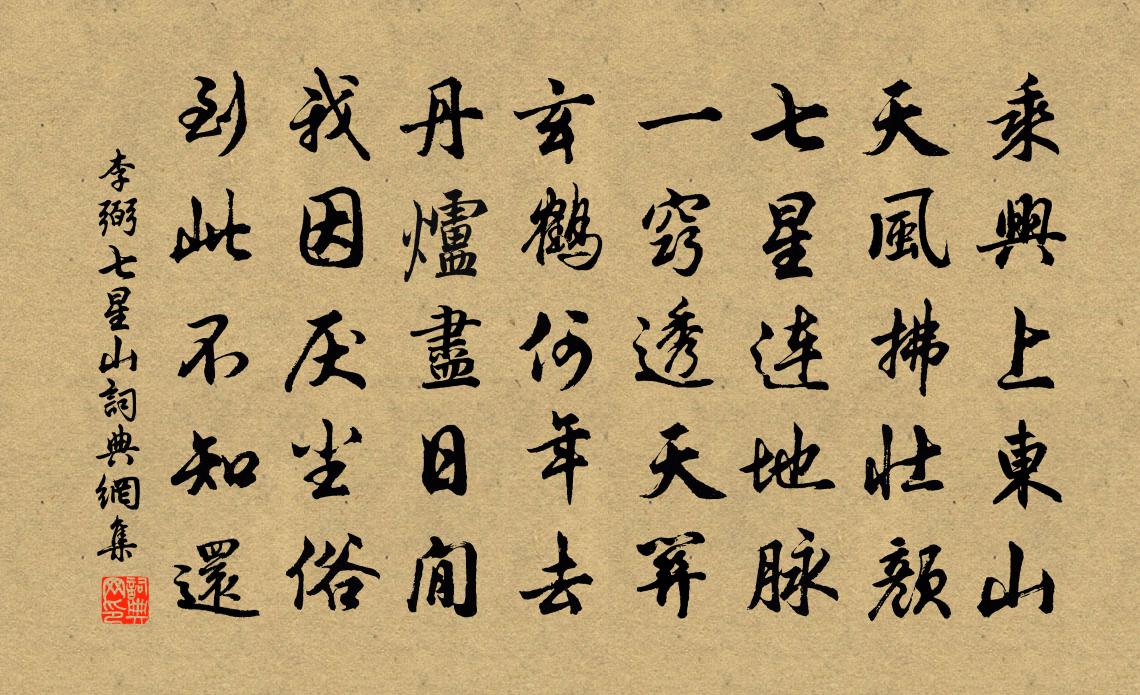 乘興上東山
天風拂壯顏
七星連地脉
一竅透天關
玄鶴何年去
丹爐盡日閒
我因厌尘俗
到此不知還
李弼七星山詞典網集
詞典网印